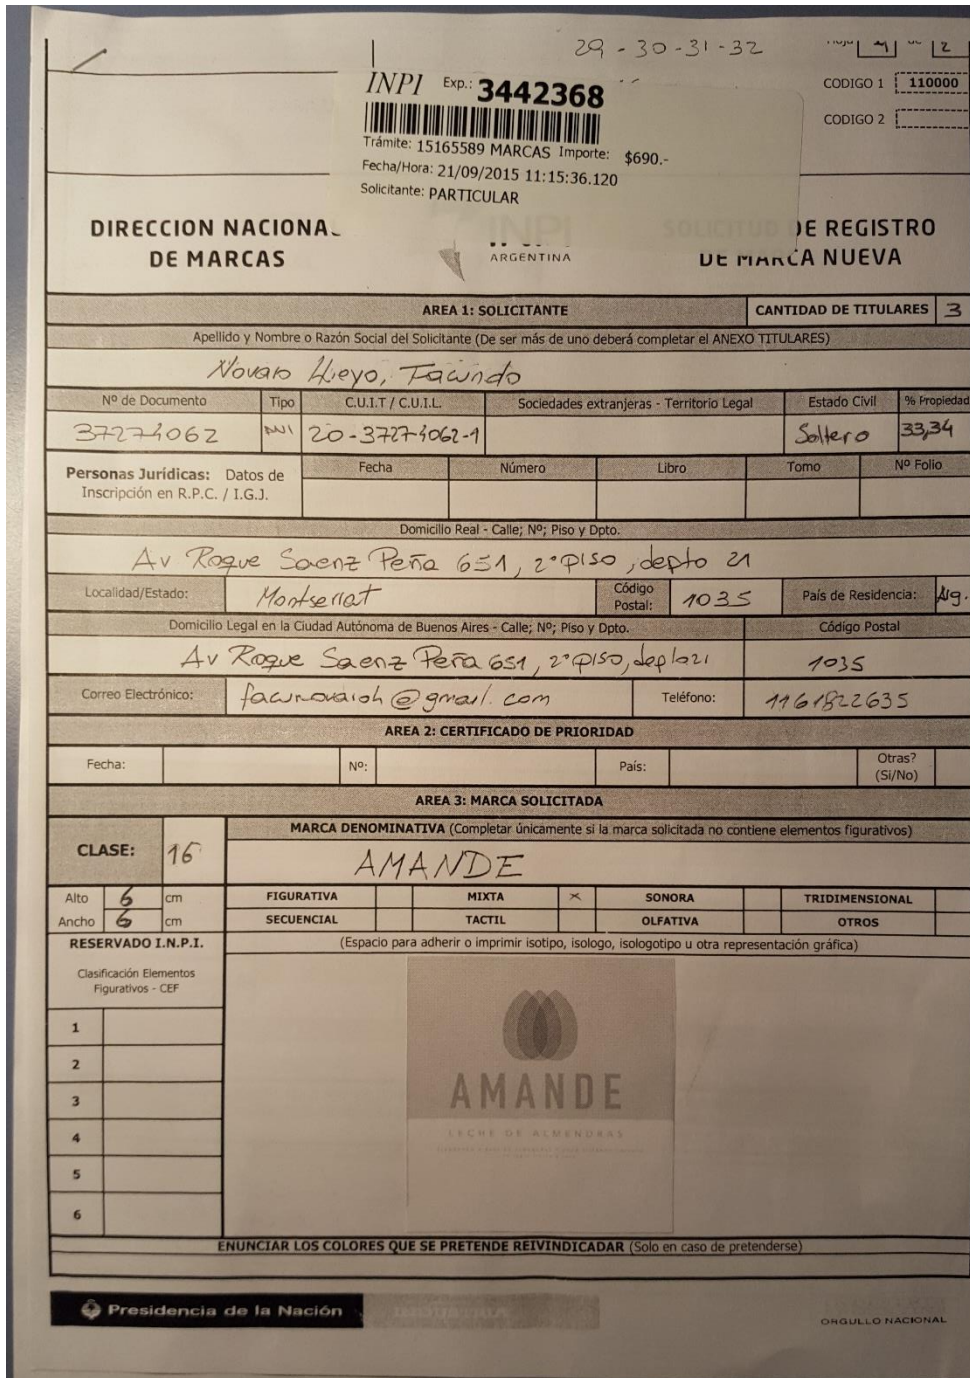 29 - 30 - 31 - 32
2
INPI Exp.: 3442368
CODIGO 1 110000
CODIGO 2
Trámite: 15165589 MARCAS Importe: $690.-
Fecha/Hora: 21/09/2015 11:15:36.120
Solicitante: PARTICULAR
DIRECCION NACIONAL
DE MARCAS
ARGENTINA
SOLICITUD DE REGISTRO
DE MARCA NUEVA
AREA 1: SOLICITANTE CANTIDAD DE TITULARES 3
Apellido y Nombre o Razón Social del Solicitante (De ser más de uno deberá completar el ANEXO TITULARES)
Facundo
Nº de Documento Tipo C.U.I.T / C.U.I.L. Sociedades extranjeras - Territorio Legal Estado Civil % Propiedad
37274062 DNI 20-37274062-1 Soltero 33,34
Personas Jurídicas: Datos de Inscripción en R.P.C. / I.G.J.
Fecha Número Libro Tomo Nº Folio
Domicilio Real - Calle; Nº; Piso y Dpto.
Av Roque Saenz Peña 651, 2º piso, depto 21
Localidad/Estado: Montserrat Código Postal: 1035 País de Residencia: Arg.
Domicilio Legal en la Ciudad Autónoma de Buenos Aires - Calle; Nº; Piso y Dpto. Código Postal
Av Roque Saenz Peña 651, 2º piso, depto 21 1035
Correo Electrónico: @gmail.com Teléfono: 1161822635
AREA 2: CERTIFICADO DE PRIORIDAD
Fecha: Nº: País: Otras? (Si/No)
AREA 3: MARCA SOLICITADA
MARCA DENOMINATIVA (Completar únicamente si la marca solicitada no contiene elementos figurativos)
CLASE: 16 AMANDE
Alto 6 cm FIGURATIVA MIXTA x SONORA TRIDIMENSIONAL
Ancho 6 cm SECUENCIAL TACTIL OLFATIVA OTROS
RESERVADO I.N.P.I. (Espacio para adherir o imprimir isotipo, isologo, isologotipo u otra representación gráfica)
Clasificación Elementos
Figurativos - CEF
1
2
3
4
5
6
AMANDE
LECHE DE ALMENDRAS
ENUNCIAR LOS COLORES QUE SE PRETENDE REIVINDICADAR (Solo en caso de pretenderse)
Presidencia de la Nación
ORGULLO NACIONAL